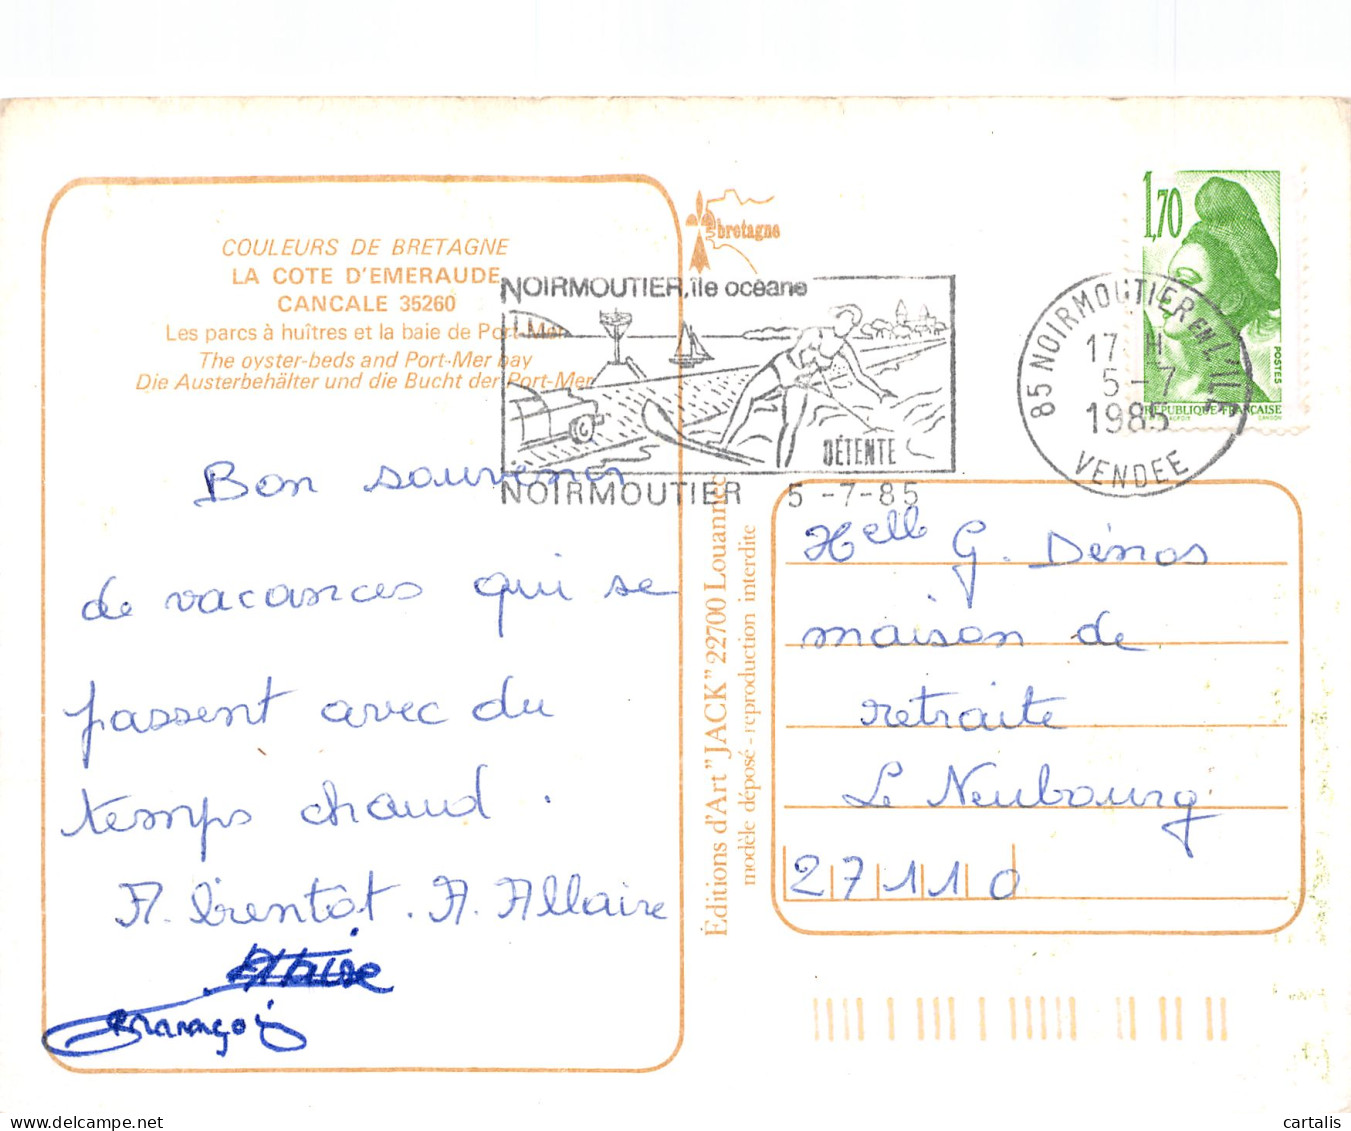 COULEURS DE BRETAGNE
LA COTE D'EMERAUDE
CANCALE 35260
Les parcs à huîtres et la baie de Port-Mer
The oyster-beds and Port-Mer bay
Die Austerbehälter und die Bucht der Port-Mer
bretagne
NOIRMOUTIER, île océane
DÉTENTE
NOIRMOUTIER 5-7-85
1,70
POSTES
REPUBLIQUE FRANÇAISE
85 NOIRMOUTIER EN L'ILE
17 H
5-7
1985
VENDEE
Bon souvenir
de vacances qui se
passent avec du
temps chaud.
A. Allaire
François
Editions d'Art "JACK" 22700 Louannec
modèle déposé - reproduction interdite
Melle G. Dénos
maison de
retraite
Le Neubourg
27110
cartalis